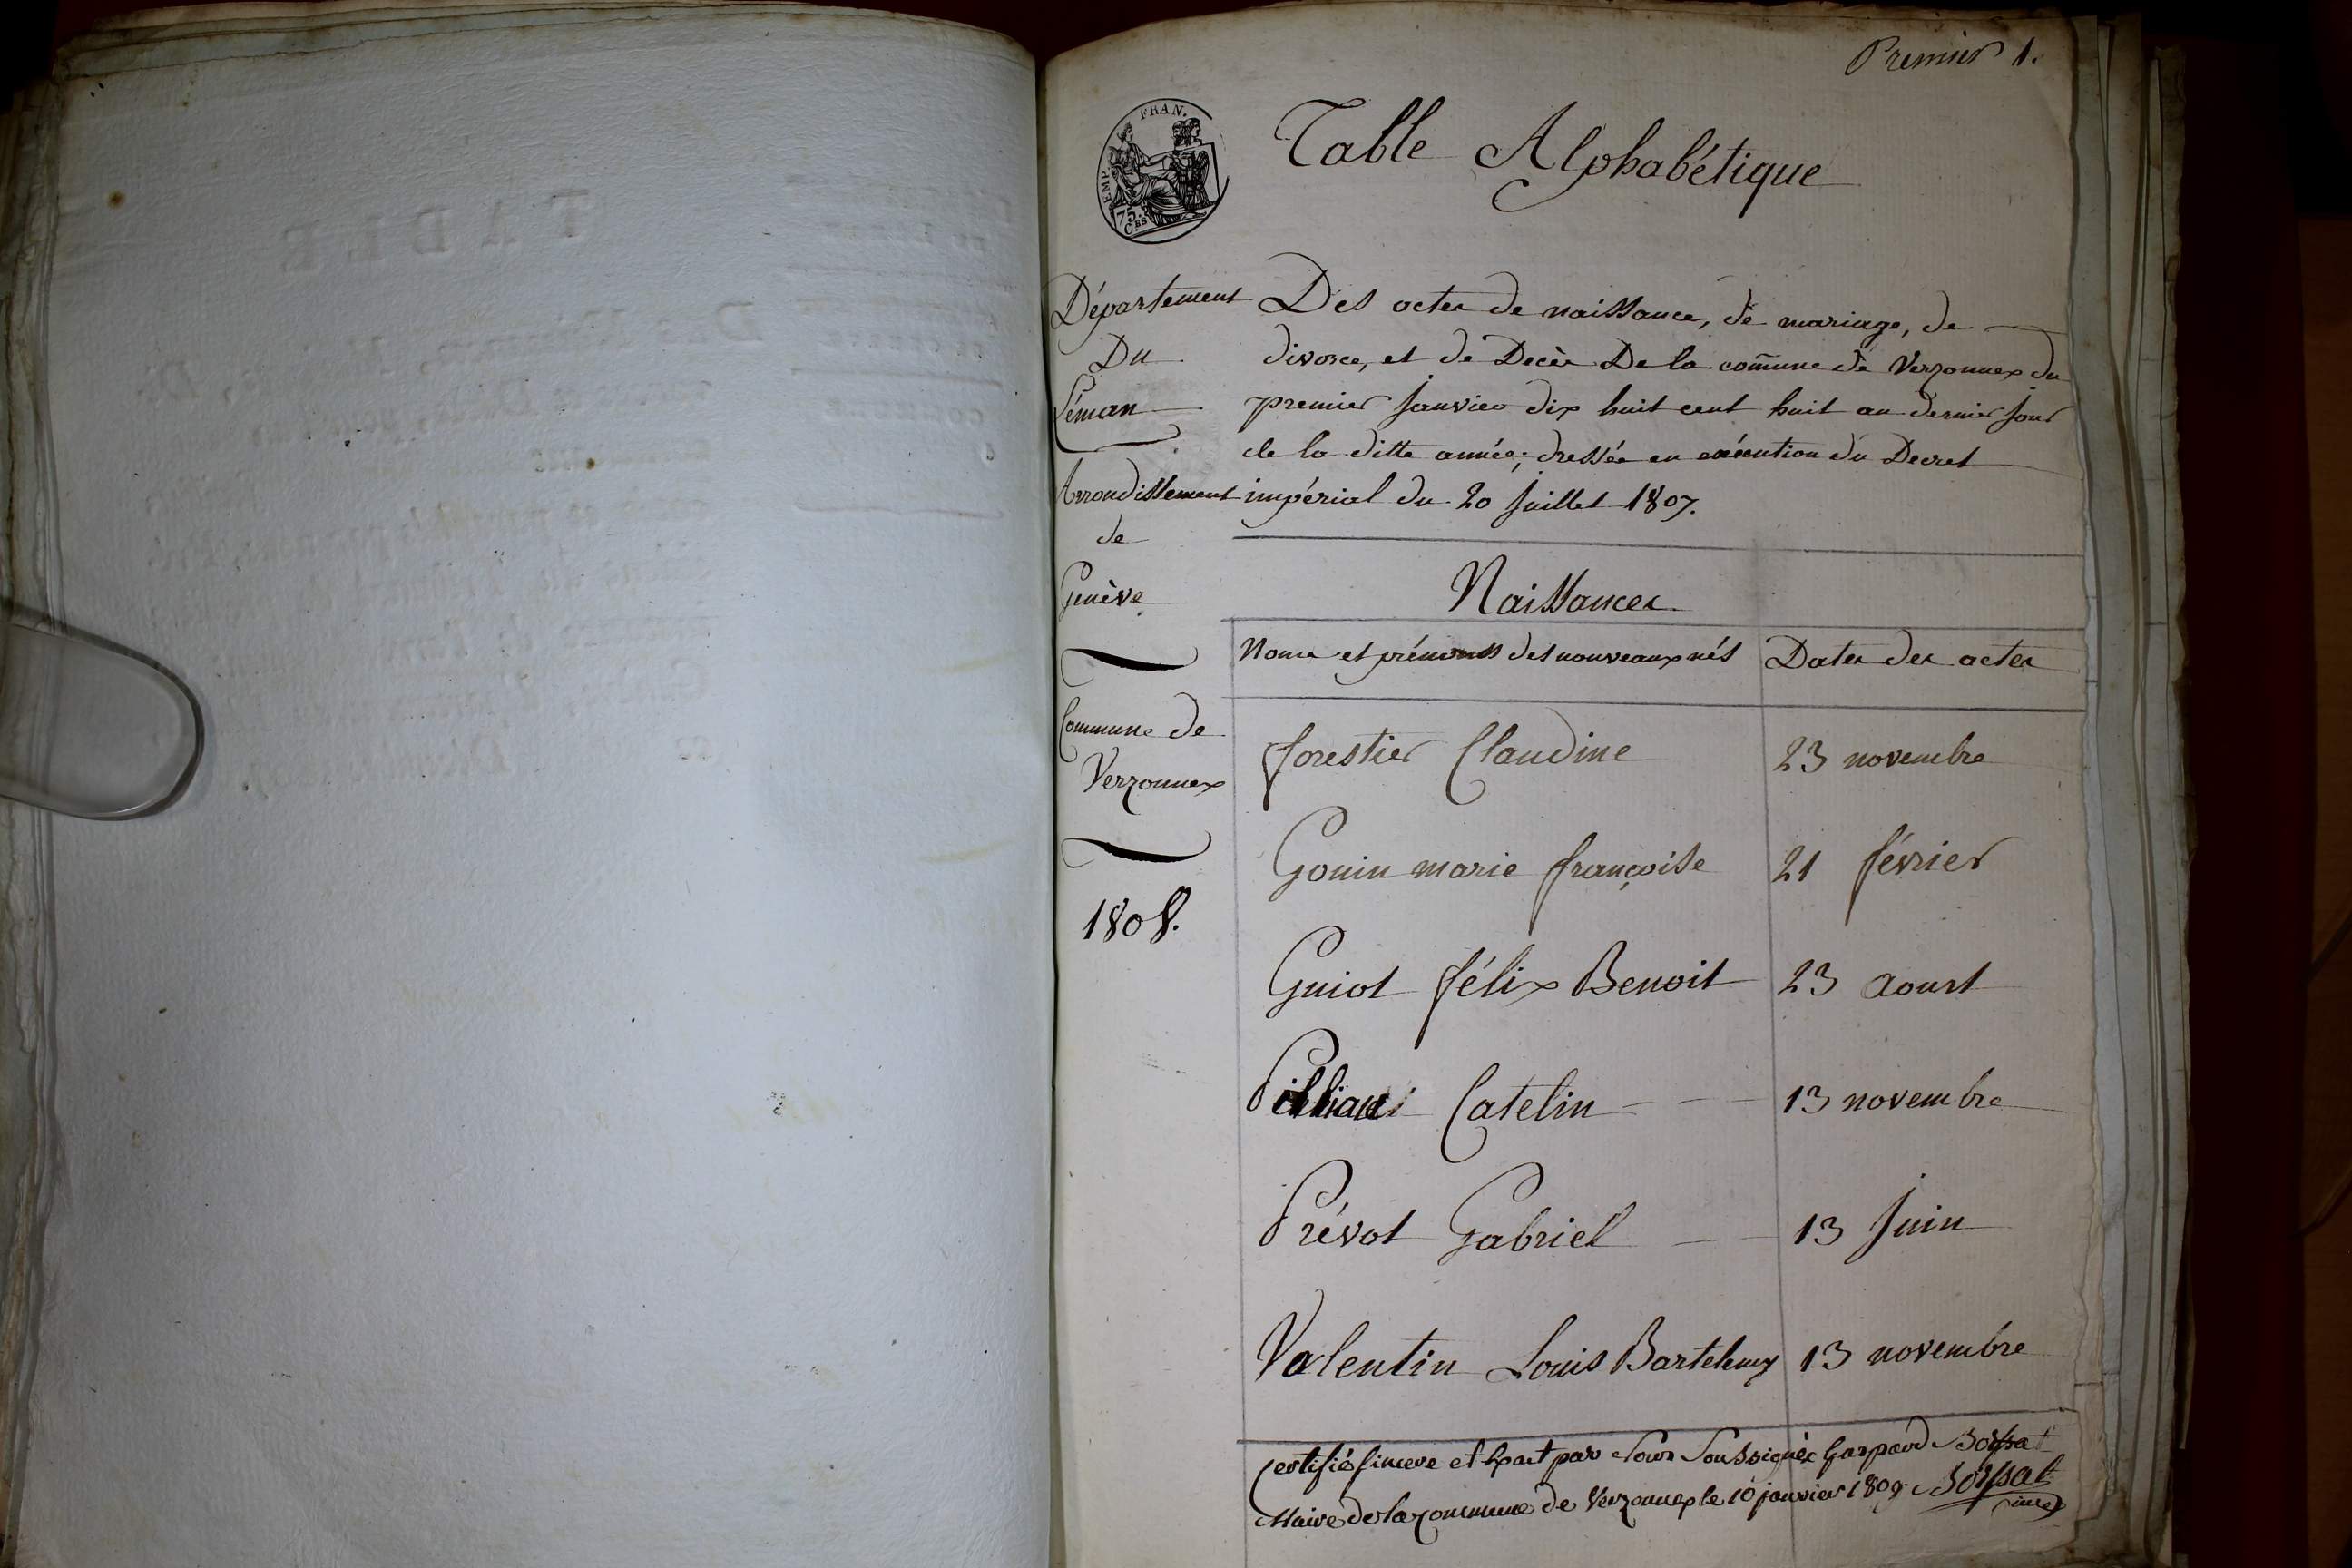 Premier 1.
EMP. FRAN.
75.
Ces
Table Alphabétique
Département
Du
Léman
Arrondissement
de
Genève
Commune de
Verzonnex
1808.
Des actes de naissance, de mariage, de
divorce, et de Decès De la com̃une de Verzonnex du
premier Janvier dix huit cent huit au dernier Jour
de la ditte année; dressée en exécution du Decret
impérial du 20 Juillet 1807.
Naissances
Noms et prénoms des nouveaux nés Dates des actes
forestier Claudine 23 novembre
Gonin marie françoise 21 février
Guiot félix Benoit 23 aoust
Catelin 13 novembre
Prévot Gabriel 13 Juin
Valentin Louis Bartelemy 13 novembre
Certifié sincere et par Nous Soussigné gaspard
Maire de la commune de Verzonnex le 10 janvier 1809.
TABLE